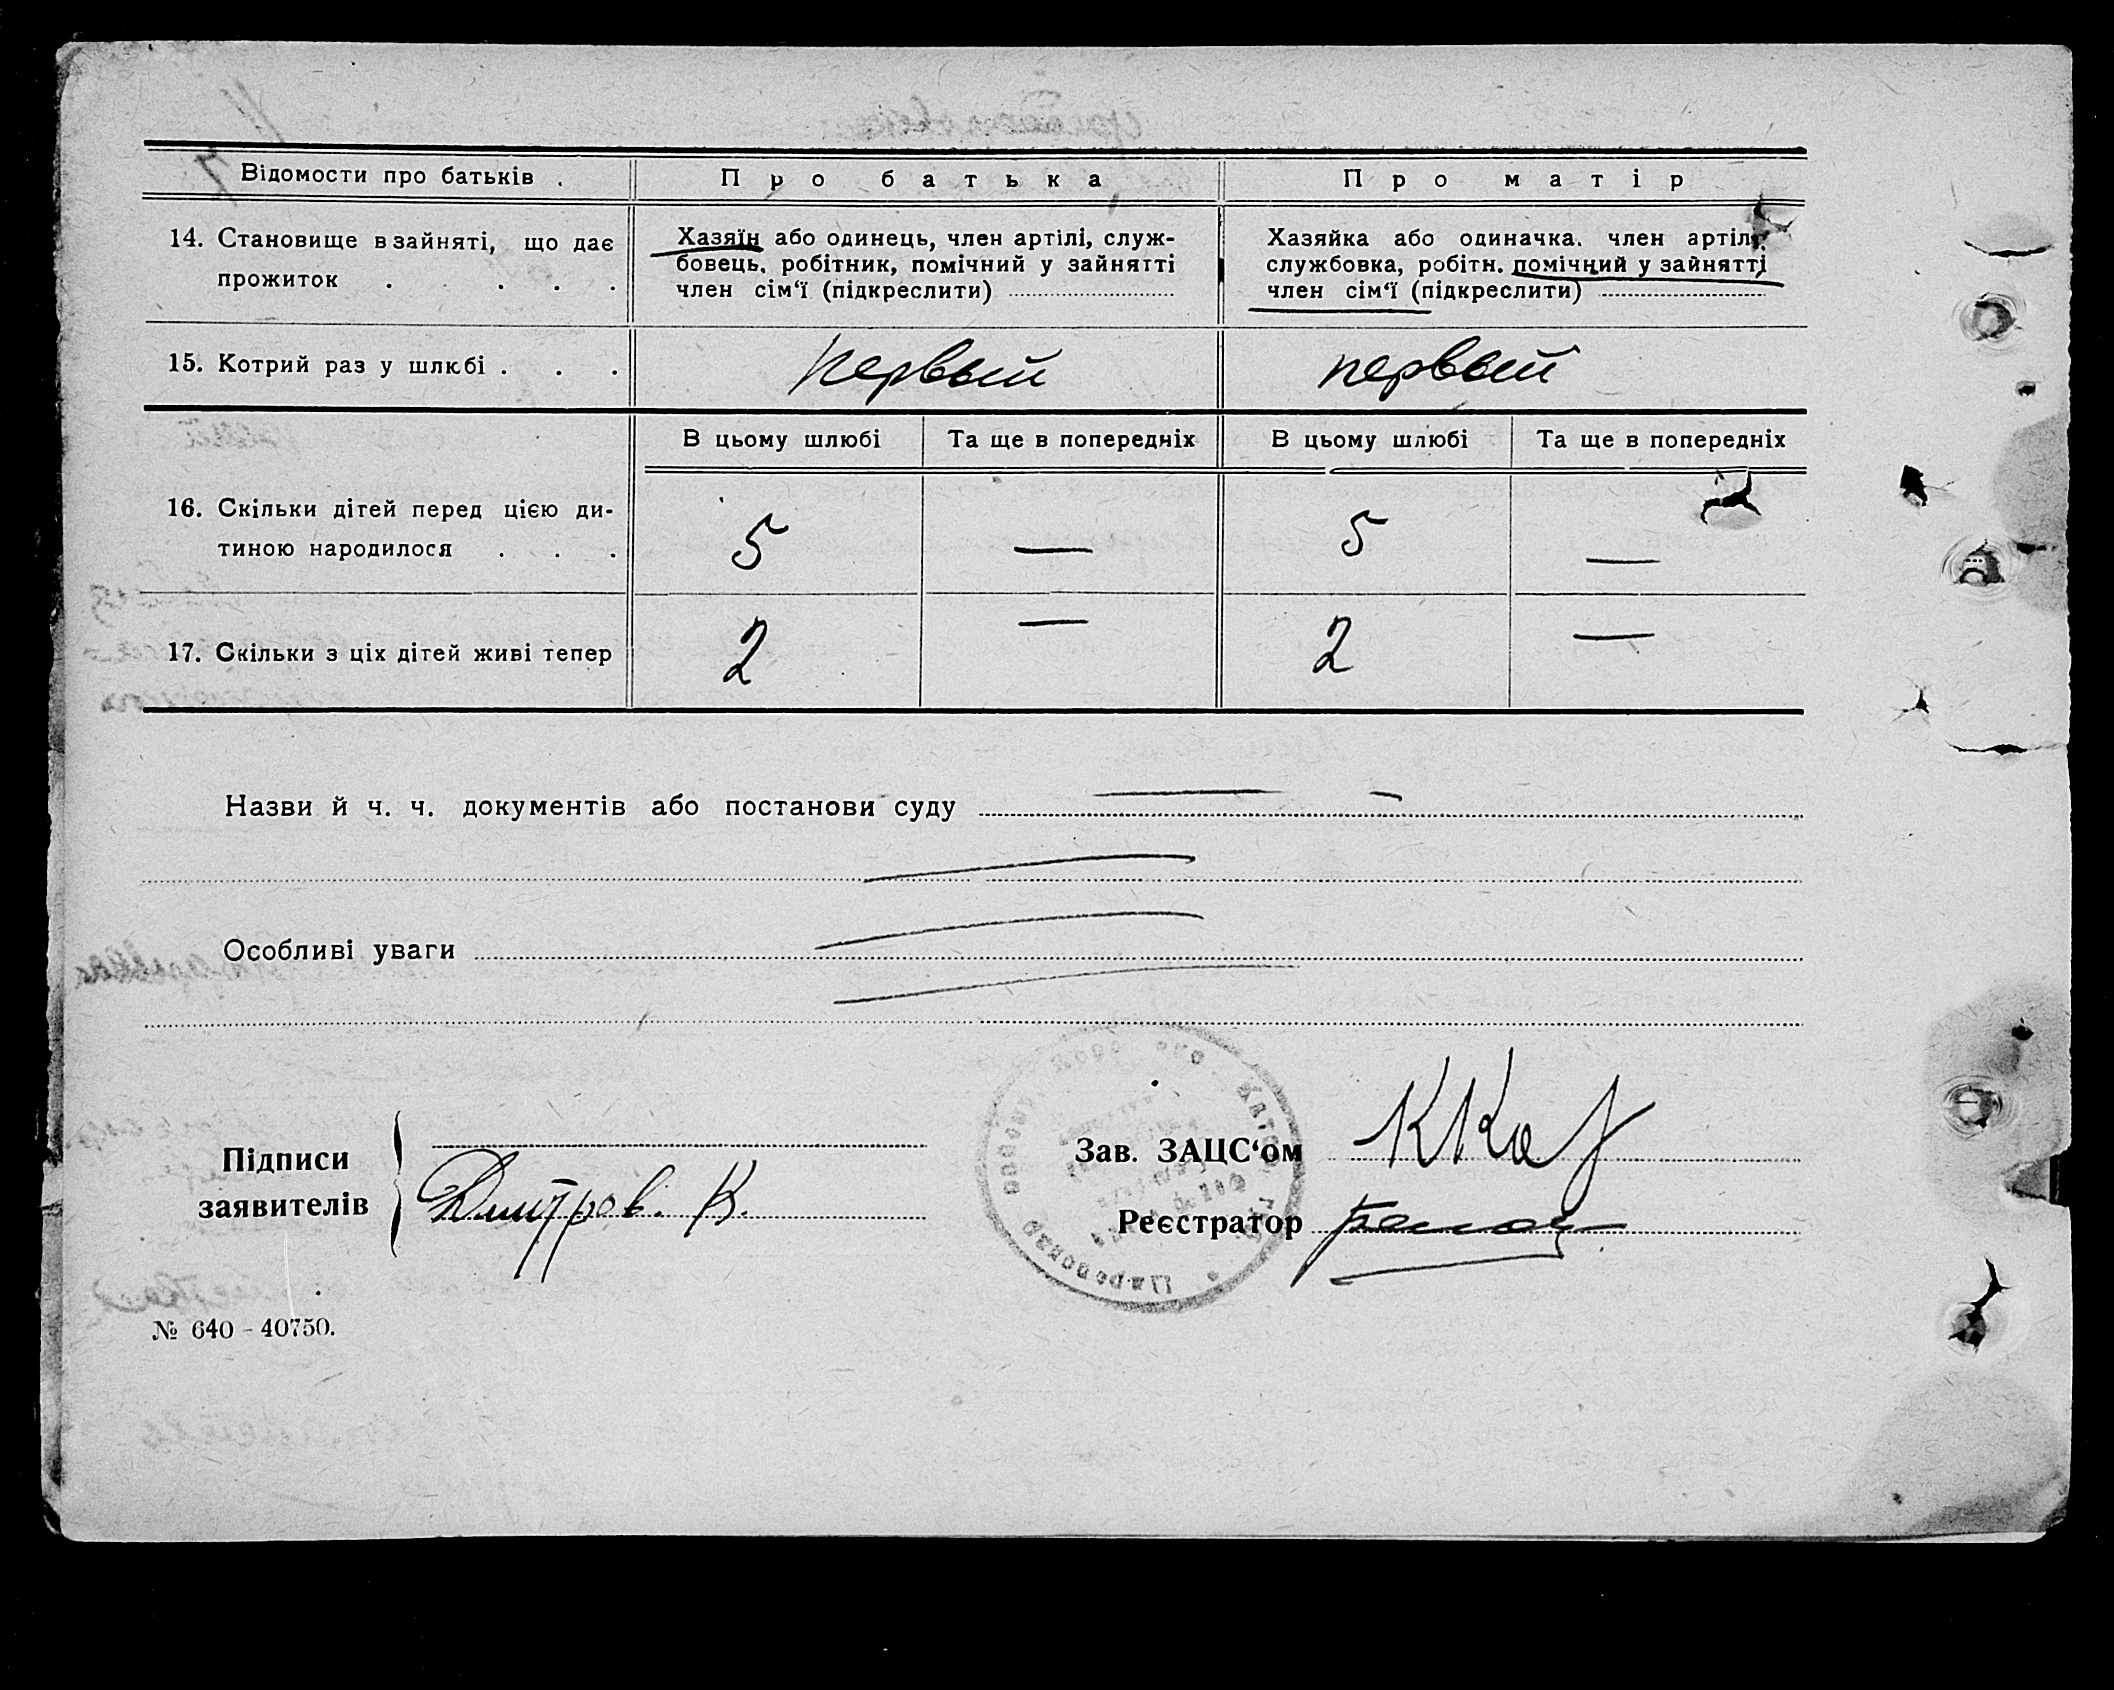 Відомости про батьків . Про батька Про матір
14. Становище в зайняті, що дає прожиток . . . .
Хазяїн або одинець, член артілі, служ-
бовець, робітник, помічний у зайнятті
член сім‘ї (підкреслити)
Хазяйка або одиначка. член артілі,
службовка, робітн. помічний у зайнятті
член сім‘ї (підкреслити)
15. Котрий раз у шлюбі . . . первый первый
В цьому шлюбі Та ще в попередніх В цьому шлюбі Та ще в попередніх
16. Скільки дітей перед цією ди-
тиною народилося . . . 5 — 5 —
17. Скільки з ціх дітей живі тепер 2 — 2 —
Назви й ч. ч. документів або постанови суду
Особливі уваги
Підписи
заявителів
Дмитров. К.
Зав. ЗАЦС‘ом
Реєстратор
№ 640 - 40750.